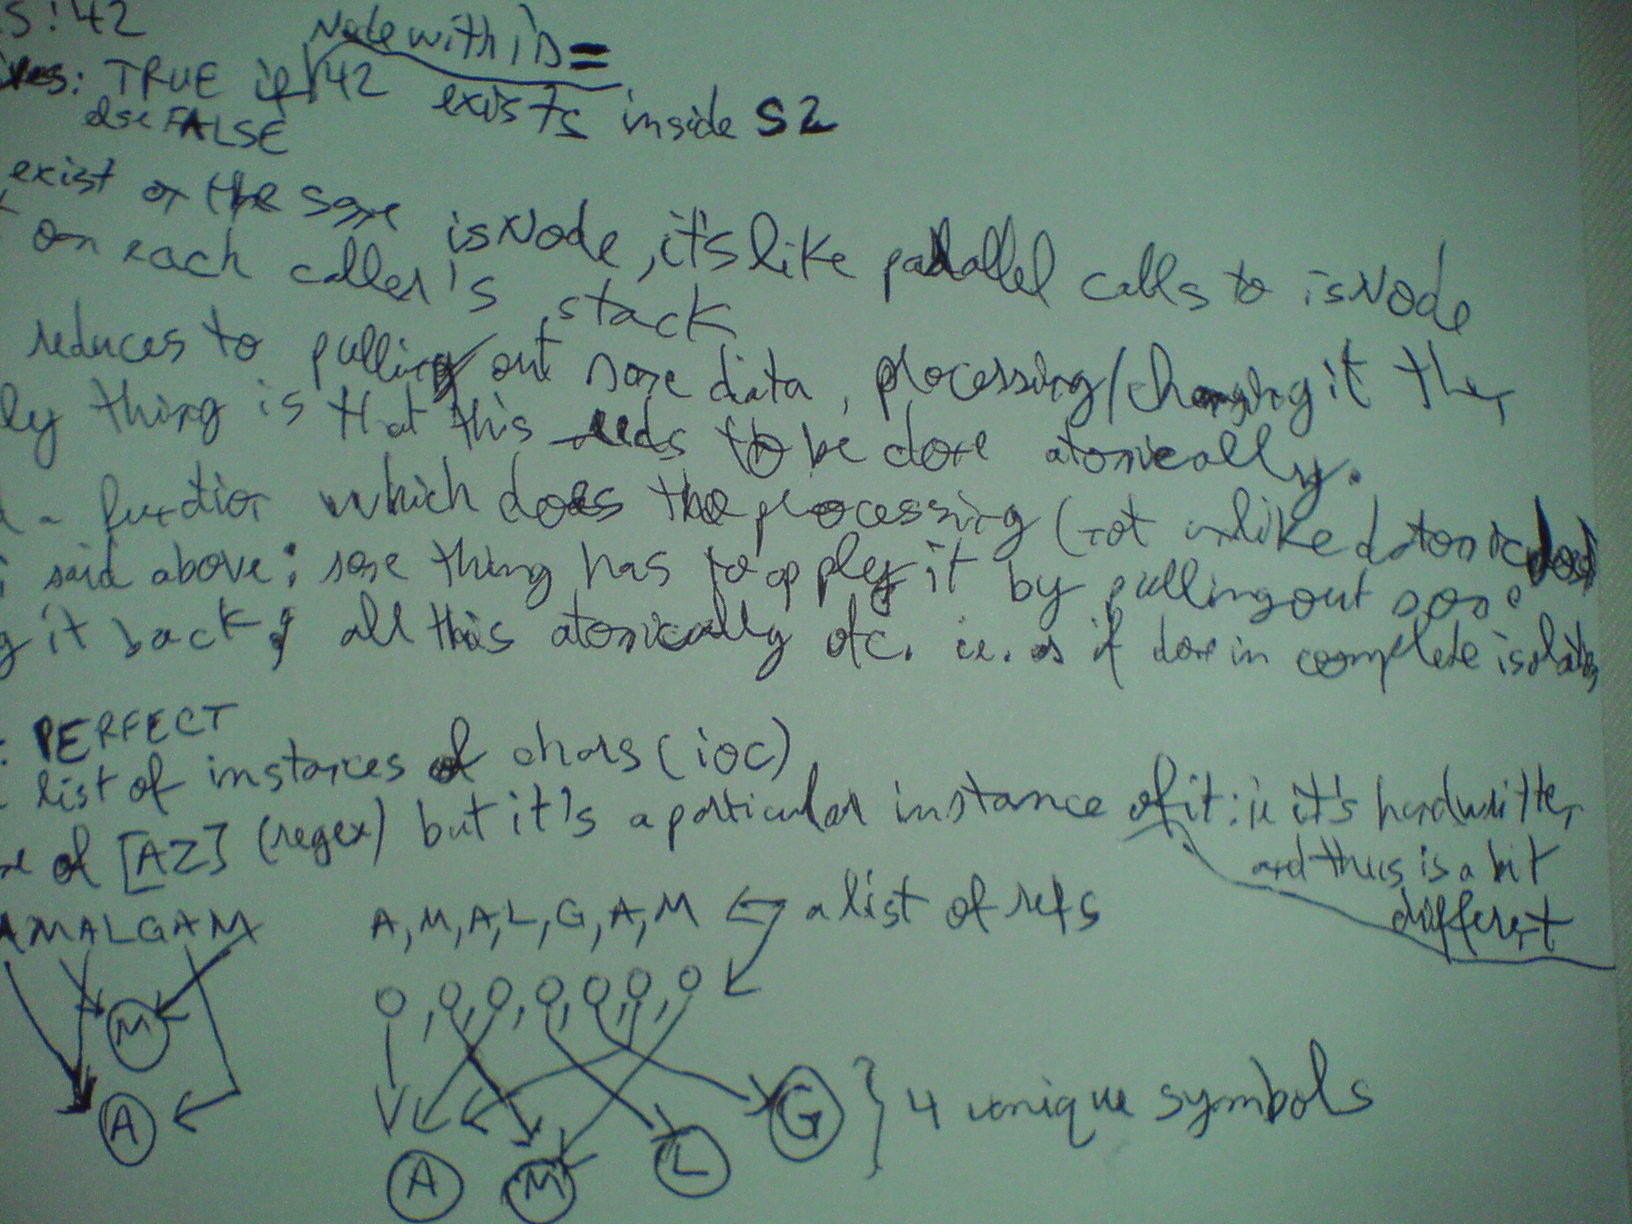 S:42
Node with ID =
TRUE if 42 exists inside S2
else FALSE
exist on the same isNode, it's like parallel calls to isNode
on each caller's stack
reduces to pulling out some data, processing/changing it then
ly thing is that this needs to be done atomically.
a function which does the processing (not unlike datomic does)
said above; some thing has to apply it by pulling out some
g it back; all this atomically etc. ie. as if done in complete isolation
: PERFECT
list of instances of chars (ioc)
of [AZ] (regex) but it's a particular instance of it: ie it's handwritten
and thus is a bit
different
AMALGAM A,M,A,L,G,A,M a list of refs
M
A
G } 4 unique symbols
A M L